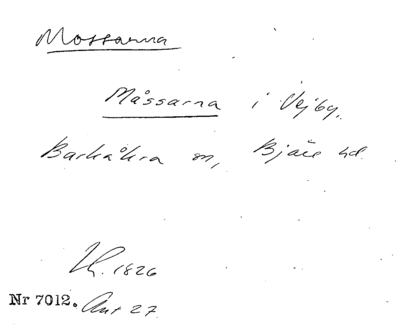 Mossarna
Måssarna i Vejby.
Barkåkra sn, Bjäre hd.
1826
Nr 7012. Akt 27